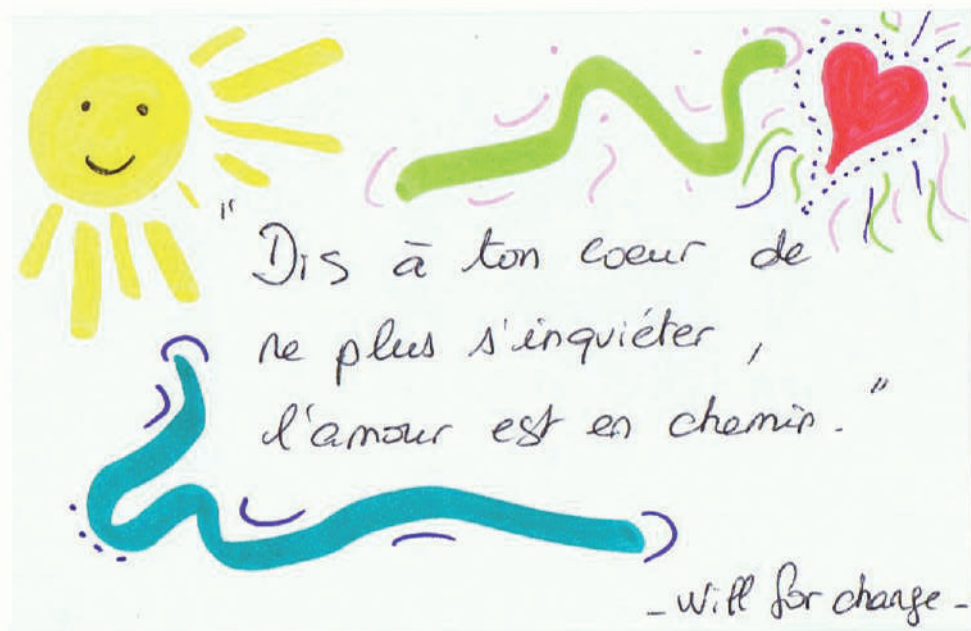 "Dis à ton coeur de
ne plus s'inquiéter,
l'amour est en chemin."
- Will for change -